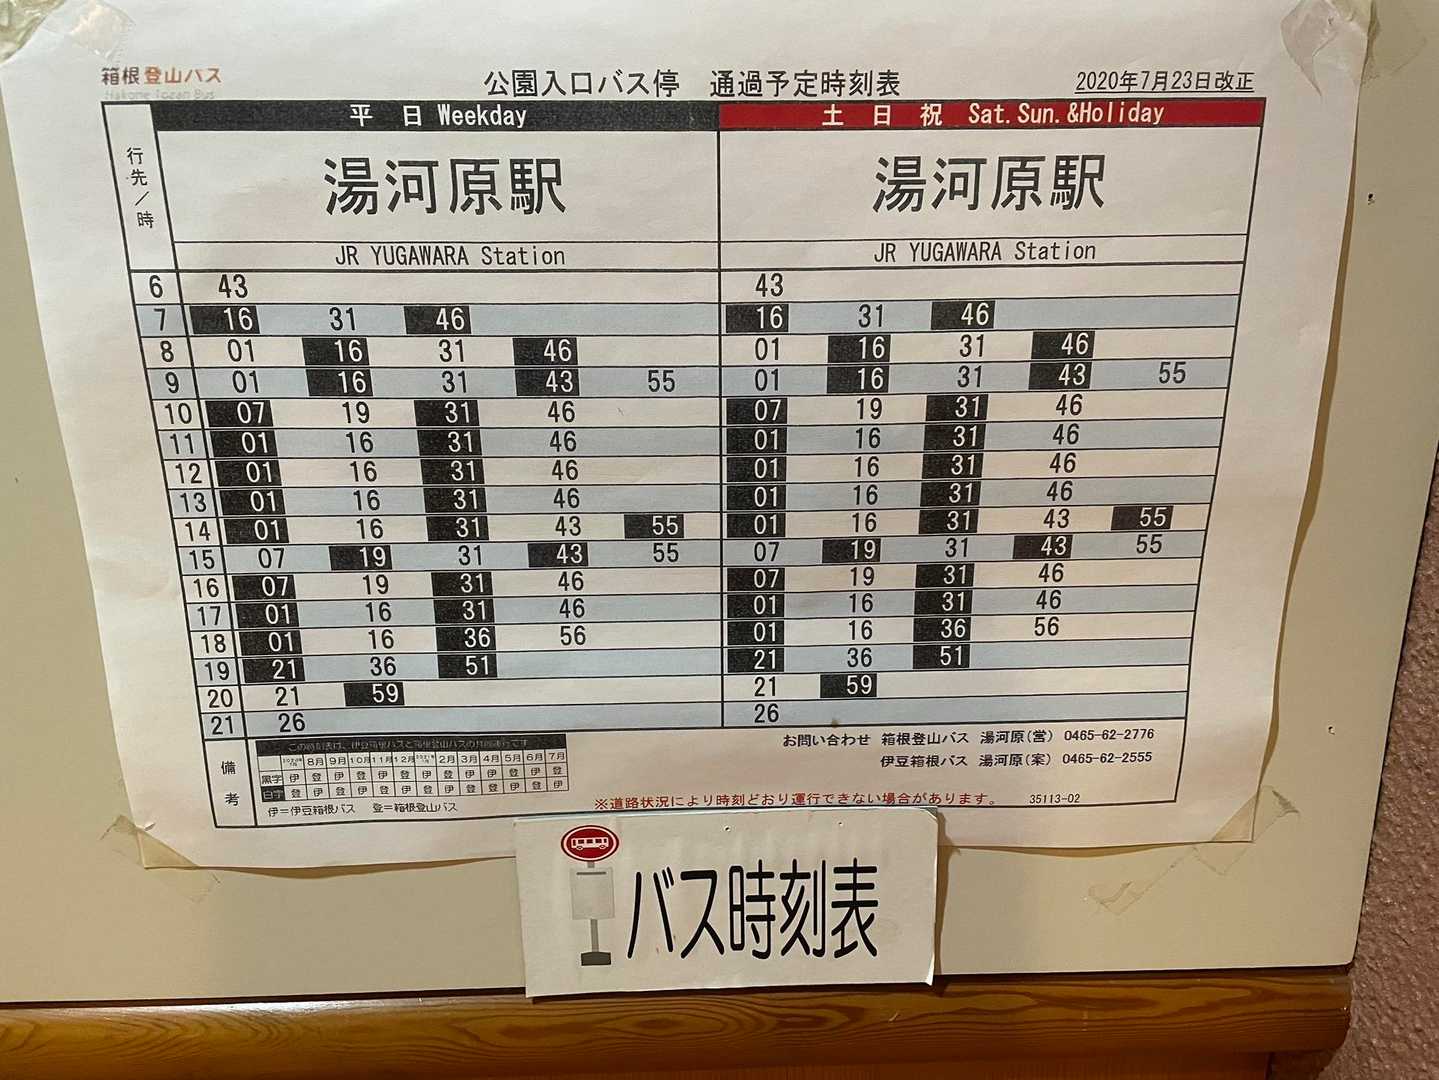 箱根登山バス
Hakone Tozan Bus
公園入口バス停 通過予定時刻表
2020年7月23日改正
平 日 Weekday 土 日 祝 Sat.Sun.&Holiday
行先／時
湯河原駅 湯河原駅
JR YUGAWARA Station JR YUGAWARA Station
6 43 43
7 16 31 46 16 31 46
8 01 16 31 46 01 16 31 46
9 01 16 31 43 55 01 16 31 43 55
10 07 19 31 46 07 19 31 46
11 01 16 31 46 01 16 31 46
12 01 16 31 46 01 16 31 46
13 01 16 31 46 01 16 31 46
14 01 16 31 43 55 01 16 31 43 55
15 07 19 31 43 55 07 19 31 43 55
16 07 19 31 46 07 19 31 46
17 01 16 31 46 01 16 31 46
18 01 16 36 56 01 16 36 56
19 21 36 51 21 36 51
20 21 59 21 59
21 26 26
備考
この時刻表は、伊豆箱根バスと箱根登山バスの共同運行です
8月 9月 10月 11月 12月 2月 3月 4月 5月 6月 7月
黒字 伊 登 伊 登 伊 登 伊 登 伊 登 伊 登 伊
白字 登 伊 登 伊 登 伊 登 伊 登 伊 登 伊 登
伊＝伊豆箱根バス 登＝箱根登山バス
お問い合わせ 箱根登山バス 湯河原(営) 0465-62-2776
伊豆箱根バス 湯河原(案) 0465-62-2555
※道路状況により時刻どおり運行できない場合があります。 35113-02
バス時刻表